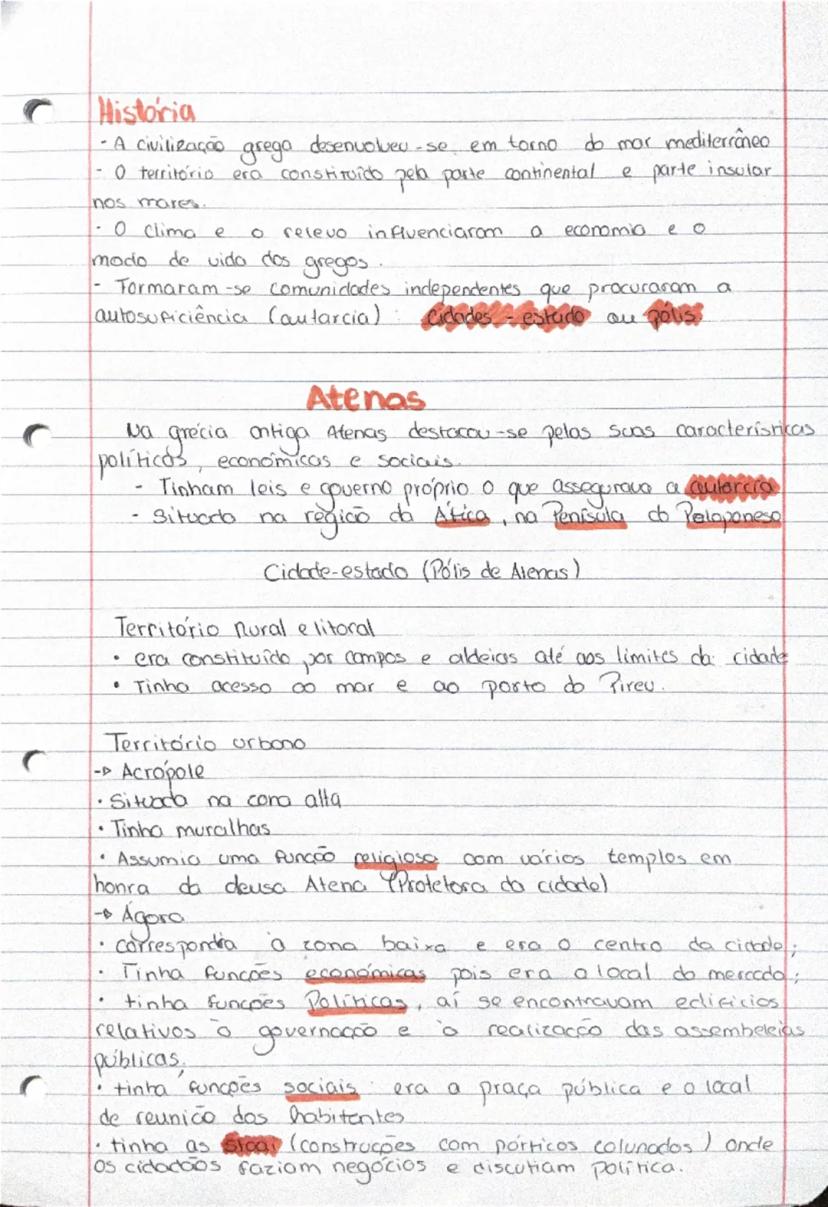 História
- A civilização grega desenvolveu-se em torno do mar mediterrâneo
- O território era constituído pela parte continental e parte insular
nos mares.
- O clima e o relevo influenciaram a economia e o
modo de vida dos gregos.
- Formaram-se comunidades independentes que procuraram a
autosuficiência (autarcia): cidades-estado ou pólis.
Atenas
Na grécia antiga Atenas destacou-se pelas suas características
políticas, económicas e sociais.
- Tinham leis e governo próprio o que assegurava a autarcia
- Situada na região da Ática, na Península do Peloponeso
Cidade-estado (Pólis de Atenas)
Território Rural e litoral
• era constituído por campos e aldeias até aos limites da cidade
• Tinha acesso ao mar e ao porto do Pireu.
Território urbano
-> Acrópole
• Situada na zona alta
• Tinha muralhas
• Assumia uma função religiosa com vários templos em
honra da deusa Atena (Protetora da cidade)
-> Ágora
• correspondia à zona baixa e era o centro da cidade;
• Tinha funções económicas pois era o local do mercado;
• tinha funções Políticas, aí se encontravam edifícios
relativos à governação e à realização das assembeleias
públicas;
• tinha funções sociais: era a praça pública e o local
de reunião dos habitantes
• tinha as stoas (construções com pórticos colunados) onde
os cidadãos faziam negócios e discutiam política.